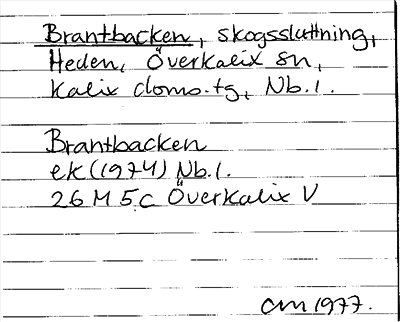 Brantbacken, skogssluttning,
Heden, Överkalix sn,
Kalix doms.tg, Nb.l.
Brantbacken
ek (1974) Nb.l.
26 M 5 c Överkalix V
am 1977.